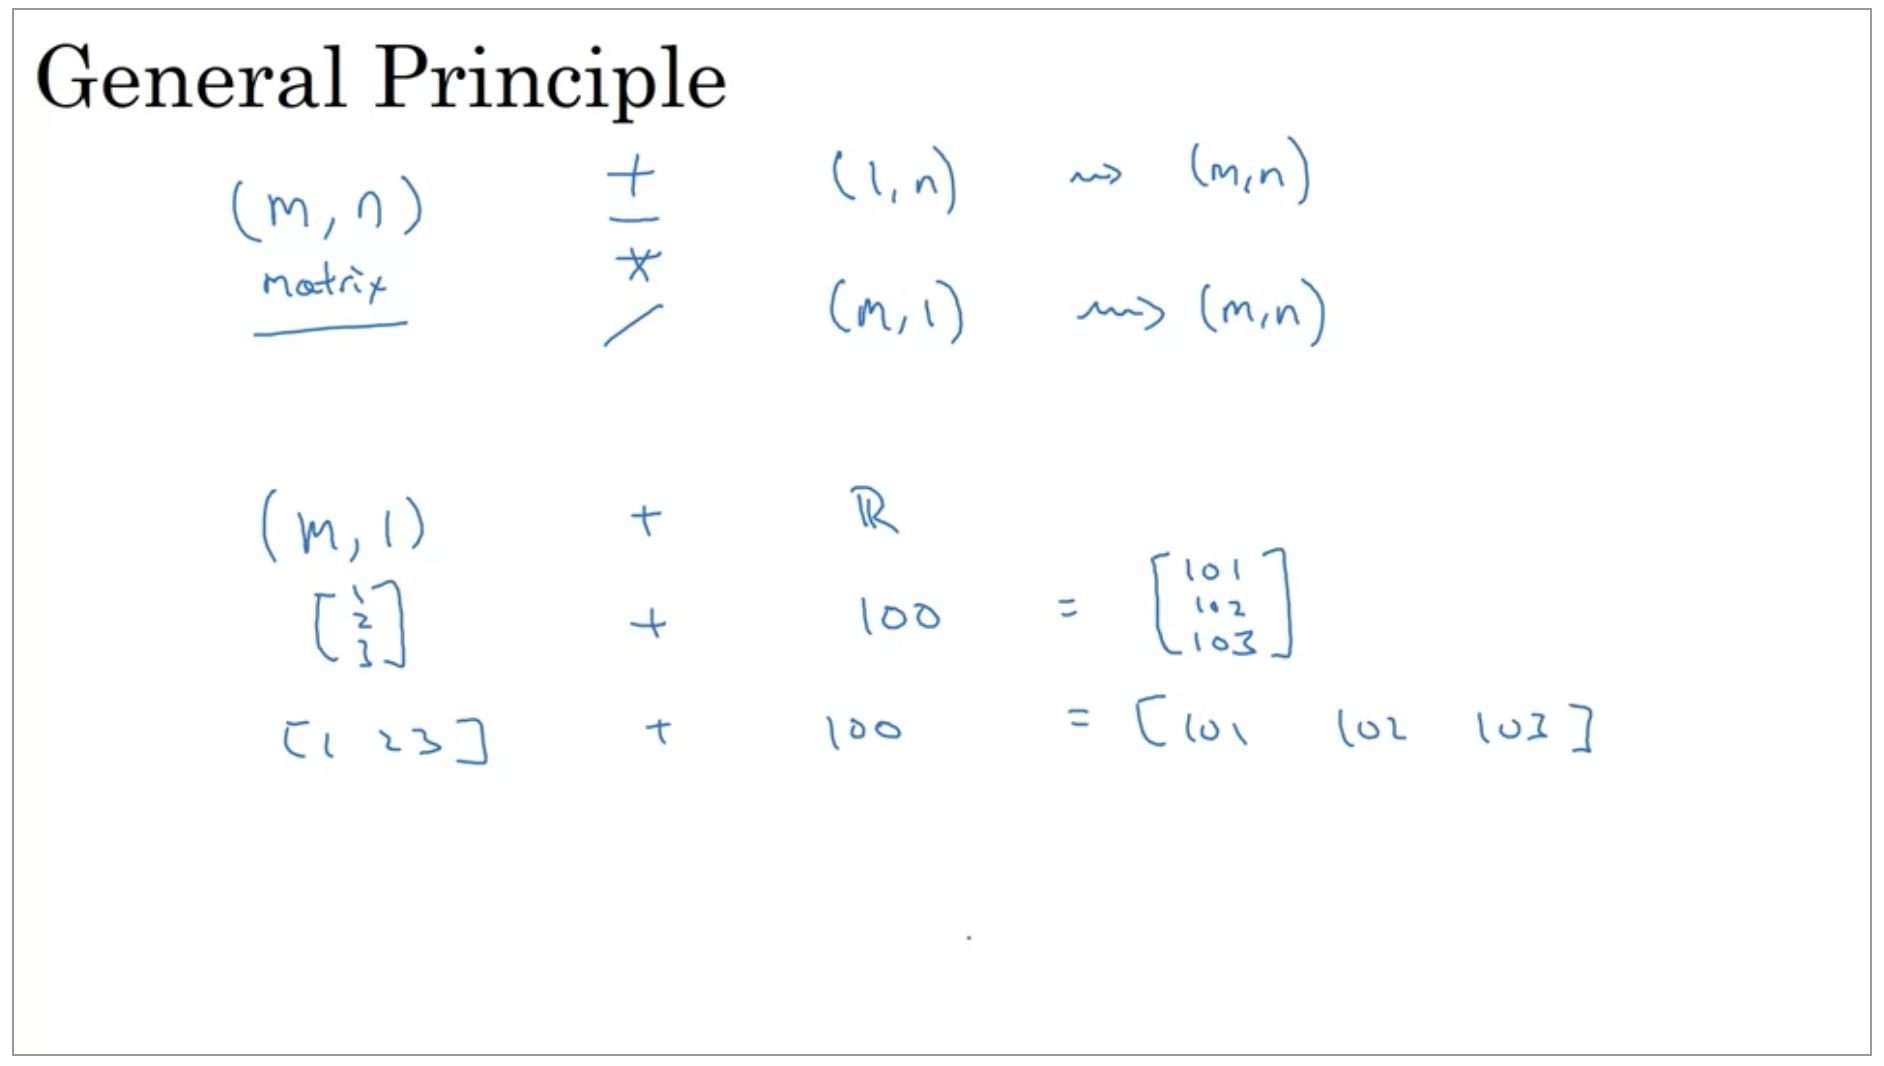 General Principle
(m, n) + (1, n) ⇝ (m,n)
matrix −
*
/ (m, 1) ⇝ (m,n)
(m, 1) + ℝ
[1 2 3] + 100 = [101 102 103]
[1 2 3] + 100 = [101 102 103]